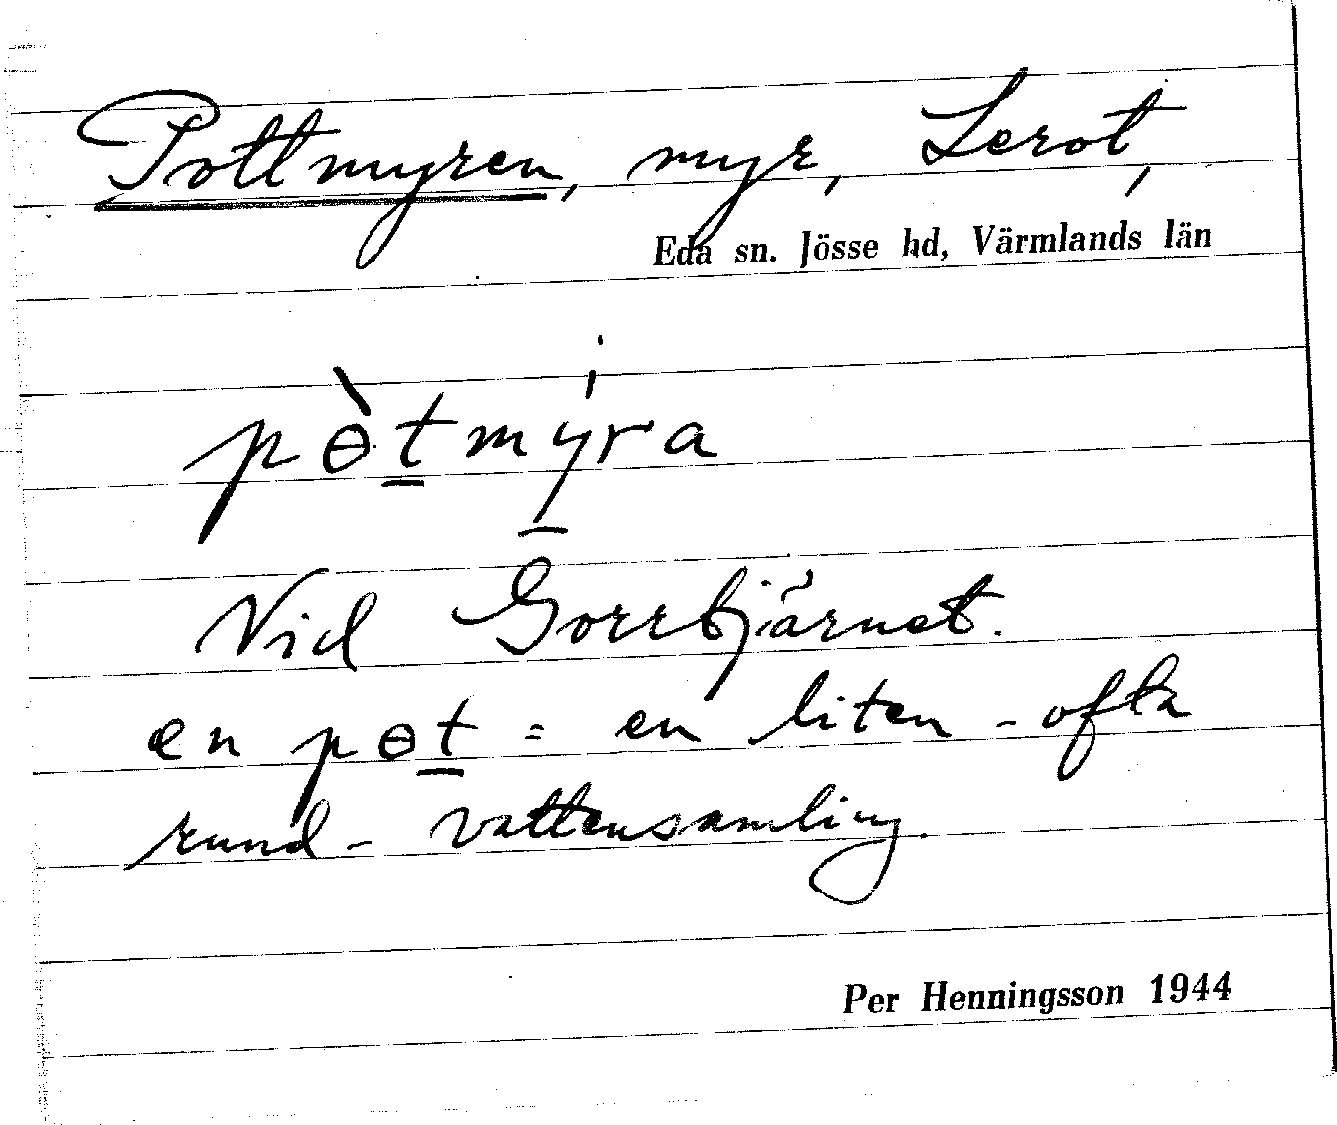 Pottmyren, myr, Lerot,
Eda sn. Jösse hd, Värmlands län
pɵ̀t̲mýra
Vid Gorrtjärnet.
en pɵt̲ = en liten - ofta
rund - vattensamling.
Per Henningsson 1944